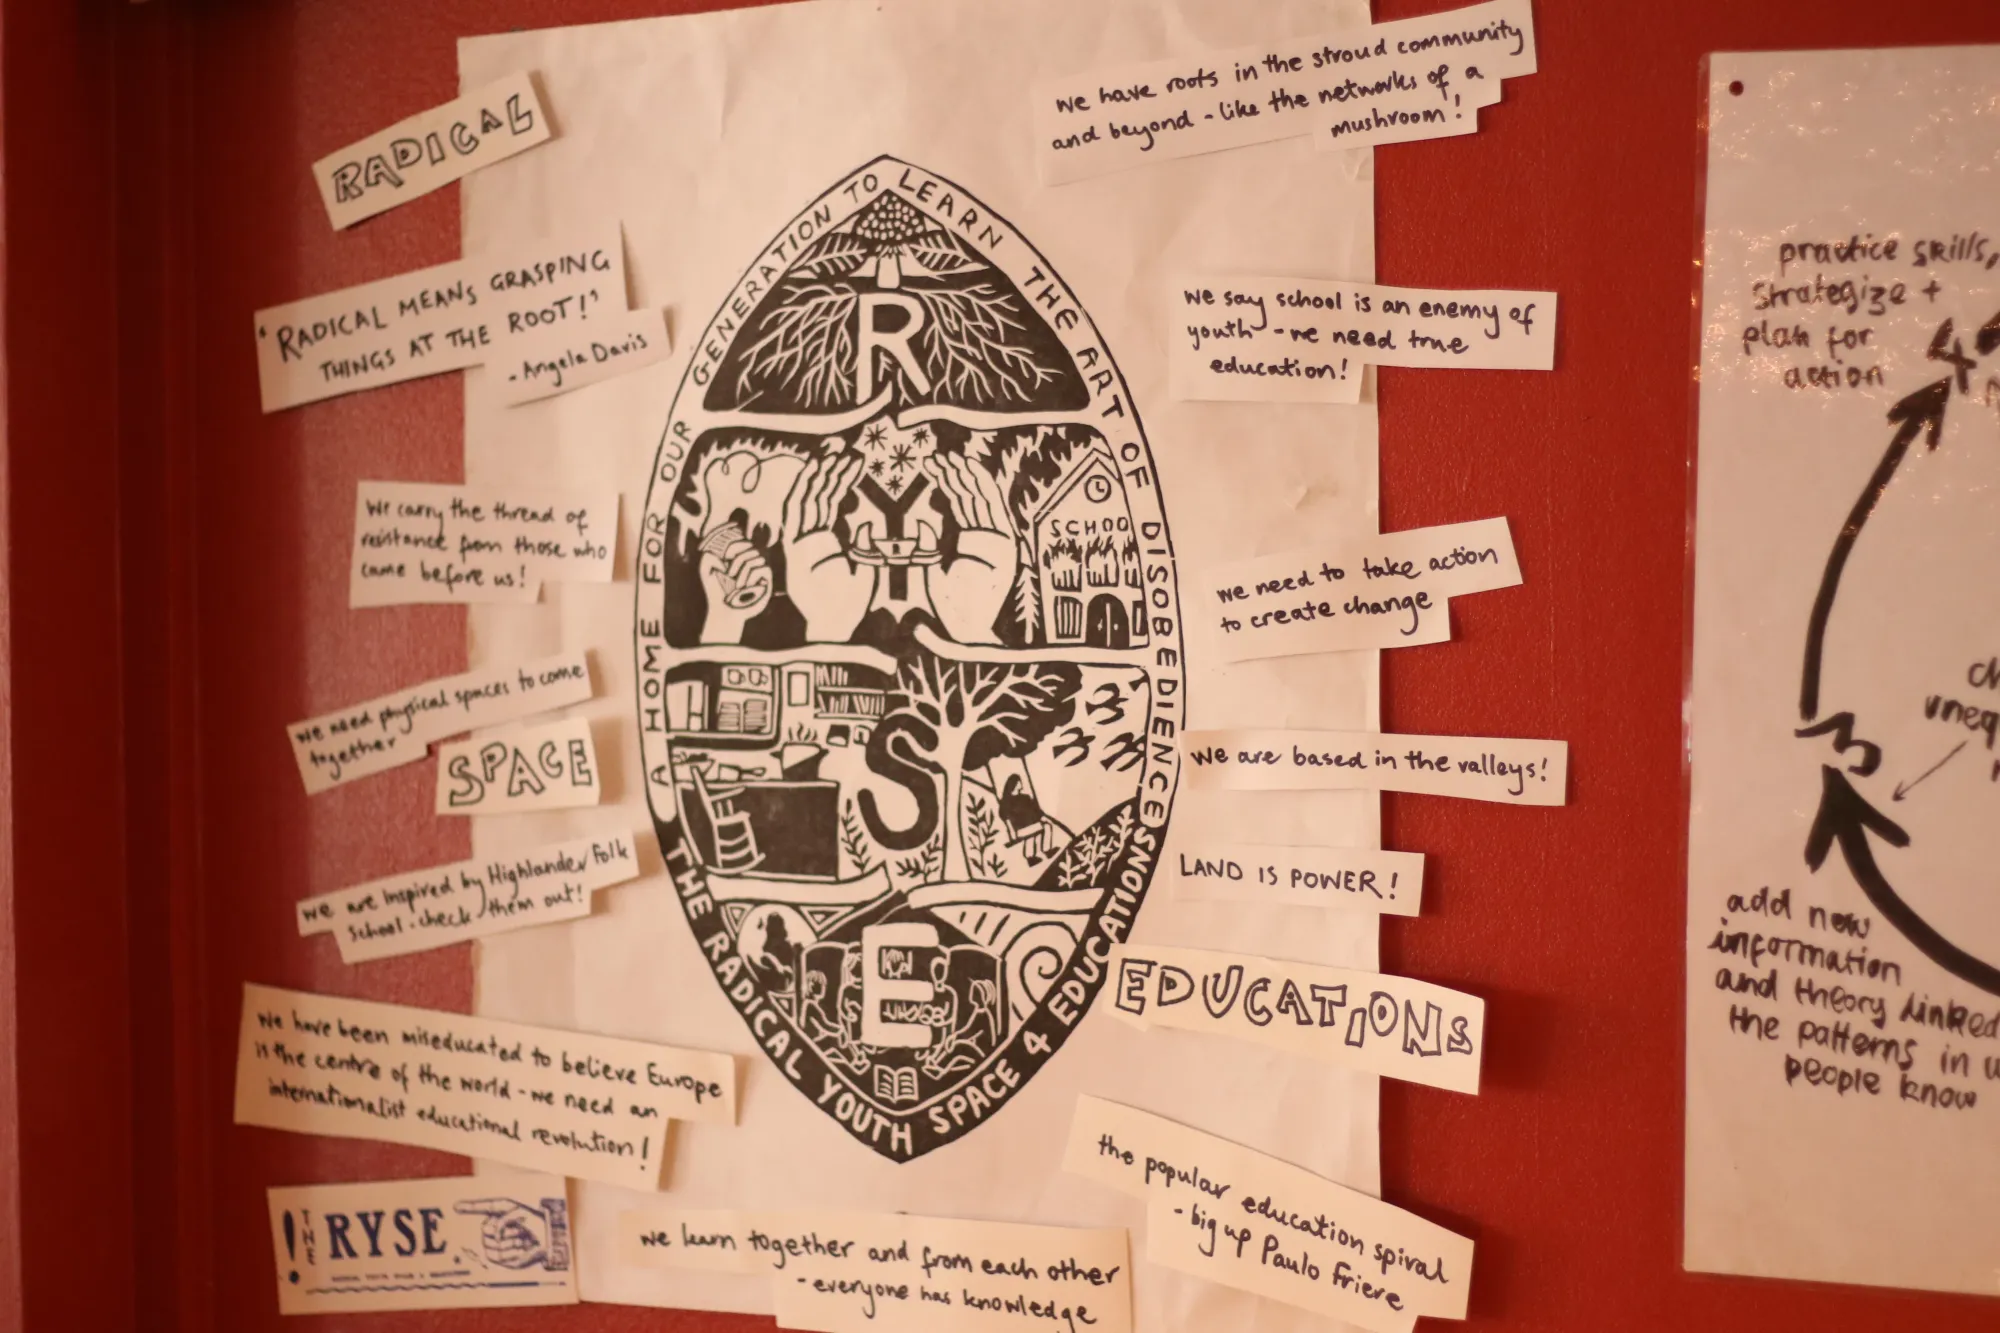 RADICAL
'RADICAL MEANS GRASPING
THINGS AT THE ROOT!'
- Angela Davis
We carry the thread of
resistance from those who
came before us!
we need physical spaces to come
together
SPACE
we are inspired by Highlander Folk
School - check them out!
We have been miseducated to believe Europe
is the centre of the world - we need an
internationalist educational revolution!
! THE RYSE
A HOME FOR OUR GENERATION TO LEARN THE ART OF DISOBEDIENCE
THE RADICAL YOUTH SPACE 4 EDUCATIONS
R
Y
SCHOO
S
E
we learn together and from each other
- everyone has knowledge
we have roots in the stroud community
and beyond - like the networks of a
mushroom!
we say school is an enemy of
youth - we need true
education!
we need to take action
to create change
we are based in the valleys!
LAND IS POWER!
EDUCATIONS
the popular education spiral
- big up Paulo Friere
practice skills,
strategize +
plan for
action
4
3
add new
information
and theory linked
the patterns in
people know